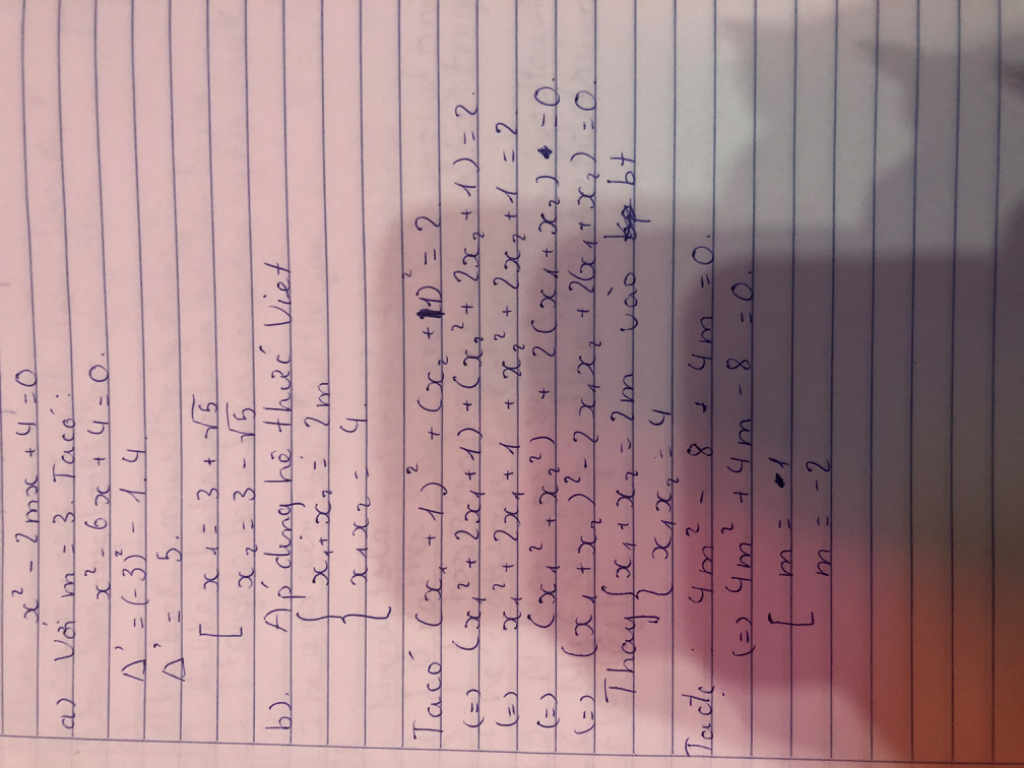 x² - 2mx + 4 = 0
a) Với m = 3. Ta có:
x² - 6x + 4 = 0.
Δ' = (-3)² - 1.4.
Δ' = 5.
[ x1 = 3 + √5
x2 = 3 - √5
b). Áp dụng hê thức Viet
{ x1 + x2 = 2m
x1x2 = 4
Ta có (x1 + 1)² + (x2 + 1)² = 2
(=) (x1² + 2x1 + 1) + (x2² + 2x2 + 1) = 2.
(=) x1² + 2x1 + 1 + x2² + 2x2 + 1 = 2
(=) (x1² + x2²) + 2(x1 + x2) = 0.
(=) (x1 + x2)² - 2x1x2 + 2(x1 + x2) = 0.
Thay { x1 + x2 = 2m vào bt
x1x2 = 4
Ta đc 4m² - 8 + 4m = 0.
(=) 4m² + 4m - 8 = 0.
[ m = 1
m = -2